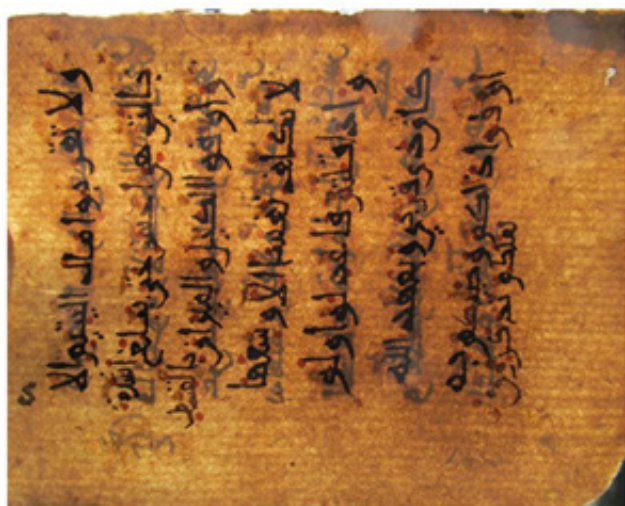 ولا تقربوا مال اليتيم الا
بالتي هي احسن حتى يبلغ اشده
واوفوا الكيل والميزان بالقسط
لا نكلف نفسا الا وسعها
واذا قلتم فاعدلوا ولو
كان ذا قربى وبعهد الله
اوفوا ذلكم وصيكم به
لعلكم تذكرون